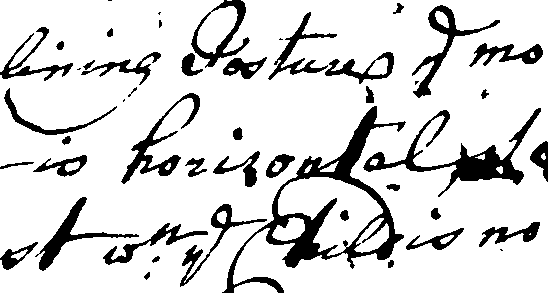 lining Postures yͤ mo
is horizontal
st wⁿ yͤ Child is no